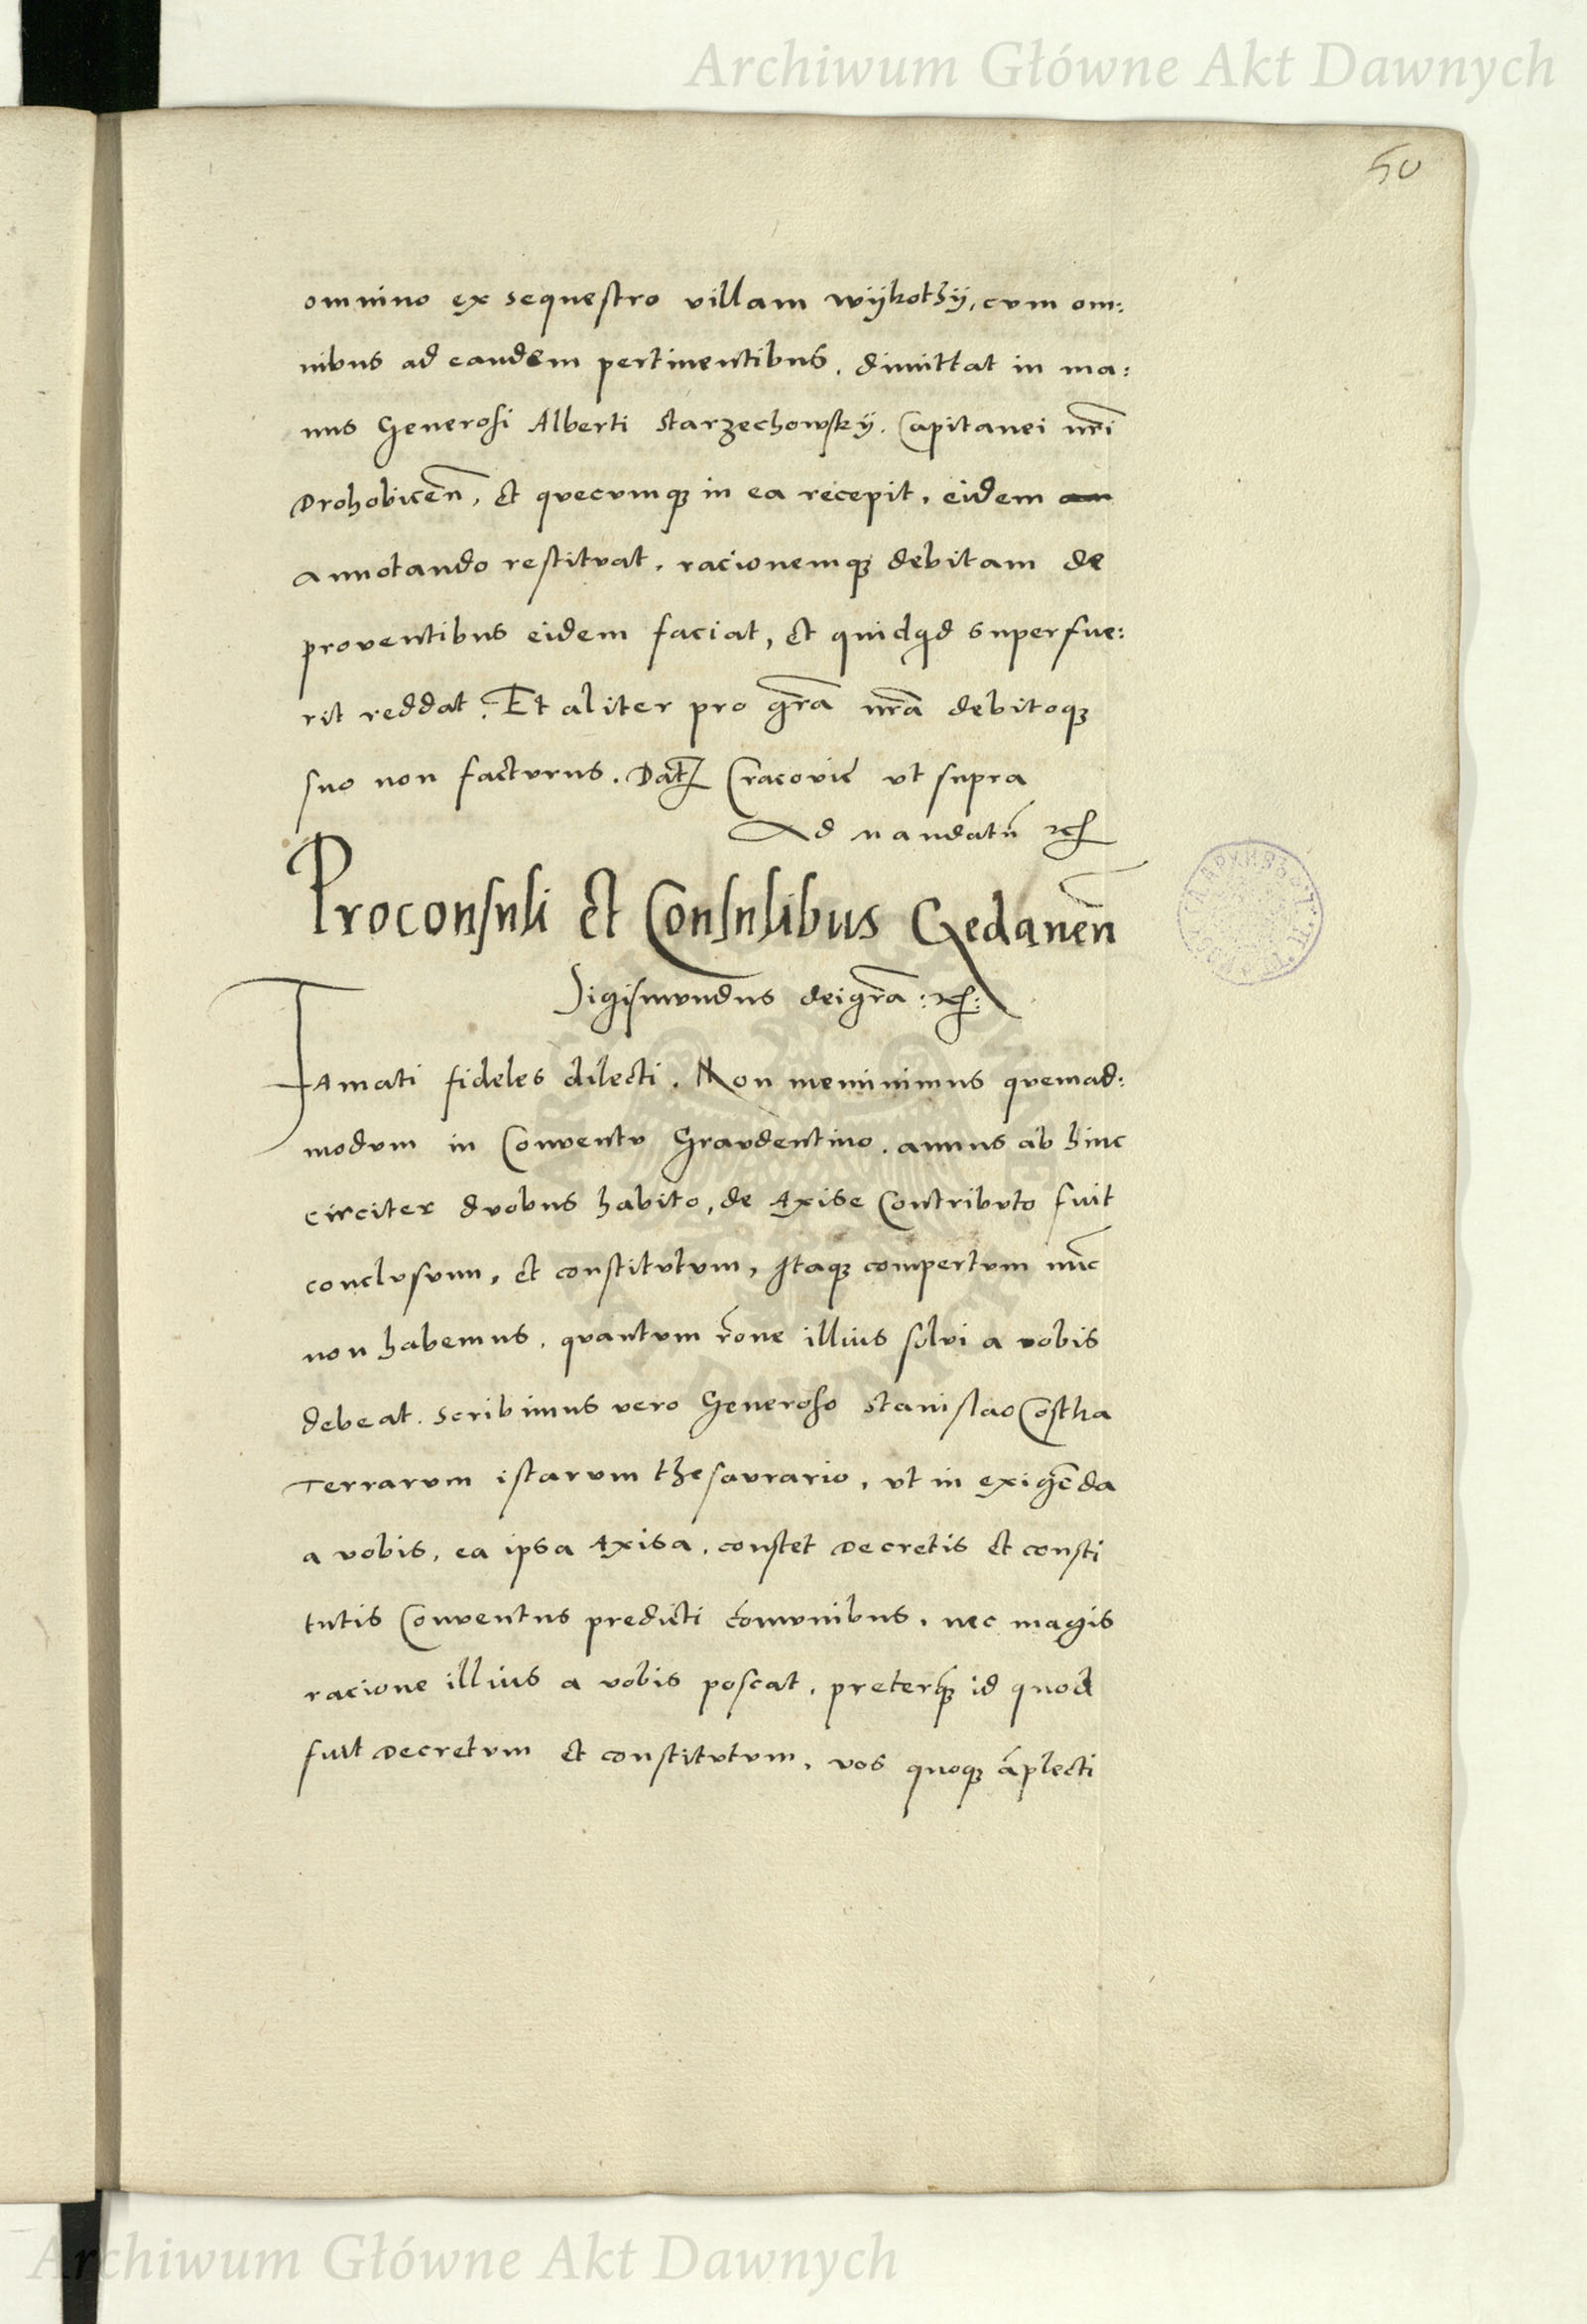 Archiwum Główne Akt Dawnych
50
omnino ex sequestro villam wÿkothÿ, cum om:
nibus ad eandem pertinentibus, dimittat in ma:
nus Generosi Alberti starzechowskÿ, Capitanei nr̃i
Drohobicen̄, et quecumqꝫ in ea recepit, eidem
annotando restituat, racionemqꝫ debitam de
proventibus eidem faciat, et quidqd superfue:
rit reddat. Et aliter pro gr̃a nr̃a debitoqꝫ
suo non facturus. Dat Cracovie ut supra
Ad mandatū ꝛc
Proconsuli et Consulibus Gedanen̄
Sigismundus dei gr̃a : ꝛc :
Famati fideles dilecti. Non meminimus quemad:
modum in Conventu Graudentino, annus ab hinc
circiter duobus habito, de Axise Contributo fuit
conclusum, et constitutum, Itaqꝫ compertum nūc
non habemus, quantum r̃one illius solvi a vobis
debeat. scribimus vero Generoso stanislao Costka
Terrarum istarum thesaurario, ut in exigēda
a vobis, ea ipsa Axisa, constet Decretis et consti
tutis Conventus predicti cōmunibus, nec magis
racione illius a vobis poscat, preterqꝫ id quod
fuit Decretum et constitutum, vos quoqꝫ āplecti
Archiwum Główne Akt Dawnych